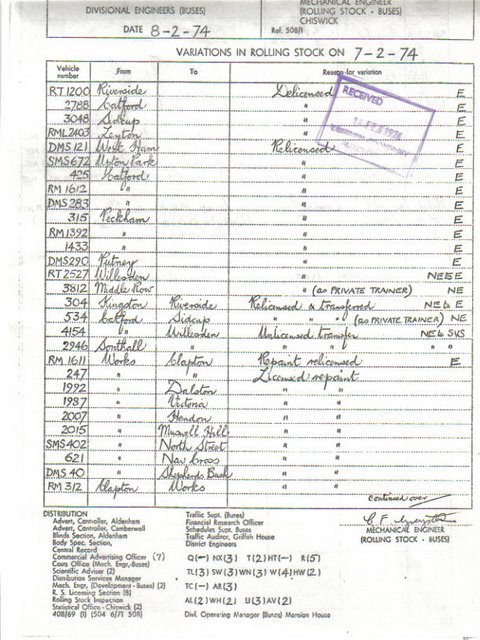 DIVISIONAL ENGINEERS (BUSES)
MECHANICAL ENGINEER
(ROLLING STOCK - BUSES)
CHISWICK
DATE 8-2-74
Ref. 508/1
VARIATIONS IN ROLLING STOCK ON 7-2-74
Vehicle number From To Reason for variation
RT 1200 Riverside Delicensed E
2788 Catford " E
3048 Sidcup " E
RML 2403 Leyton " E
DMS 121 West Ham Relicensed E
SMS 672 Upton Park " E
425 Catford " E
RM 1612 " " E
DMS 283 " " E
315 Peckham " E
RM 1392 " " E
1433 " " E
DMS 290 Putney " E
RT 2527 Willesden " NE to E
3812 Middle Row " (as PRIVATE TRAINER) NE
304 Kingston Riverside Relicensed & transferred NE to E
534 Catford Sidcup " " (as PRIVATE TRAINER) NE
4154 " Willesden Unlicensed transfer NE to SUS
2946 Southall " " " " "
RM 1611 Works Clapton Repaint relicensed E
247 " " Licensed repaint
1992 " Dalston " "
1987 " Victoria " "
2007 " Hendon " "
2015 " Muswell Hill " "
SMS 402 " North Street " "
621 " New Cross " "
DMS 40 " Shepherds Bush " "
RM 312 Clapton Works
continued over
RECEIVED
DISTRIBUTION
Advert, Controller, Aldenham
Advert, Controller, Camberwell
Blinds Section, Aldenham
Body Spec. Section,
Central Record
Commercial Advertising Officer (7)
Costs Office (Mech. Engr, Buses)
Scientific Adviser (2)
Distribution Services Manager
Mech. Engr, (Development - Buses) (2)
R. S. Licensing Section (8)
Rolling Stock Inspection
Statistical Office - Chiswick (2)
408/69 (1) (504 6/71 508)
Traffic Supt. (Buses)
Financial Research Officer
Schedules Supt. Buses
Traffic Auditor, Griffith House
District Engineers
Q(-) NX(3) T(2) HT(-) R(5)
TL(3) SW(3) WN(3) W(4) HW(2)
TC(-) AR(3)
AL(2) WH(2) U(3) AV(2)
Divl. Operating Manager (Buses) Mansion House
MECHANICAL ENGINEER
(ROLLING STOCK - BUSES)